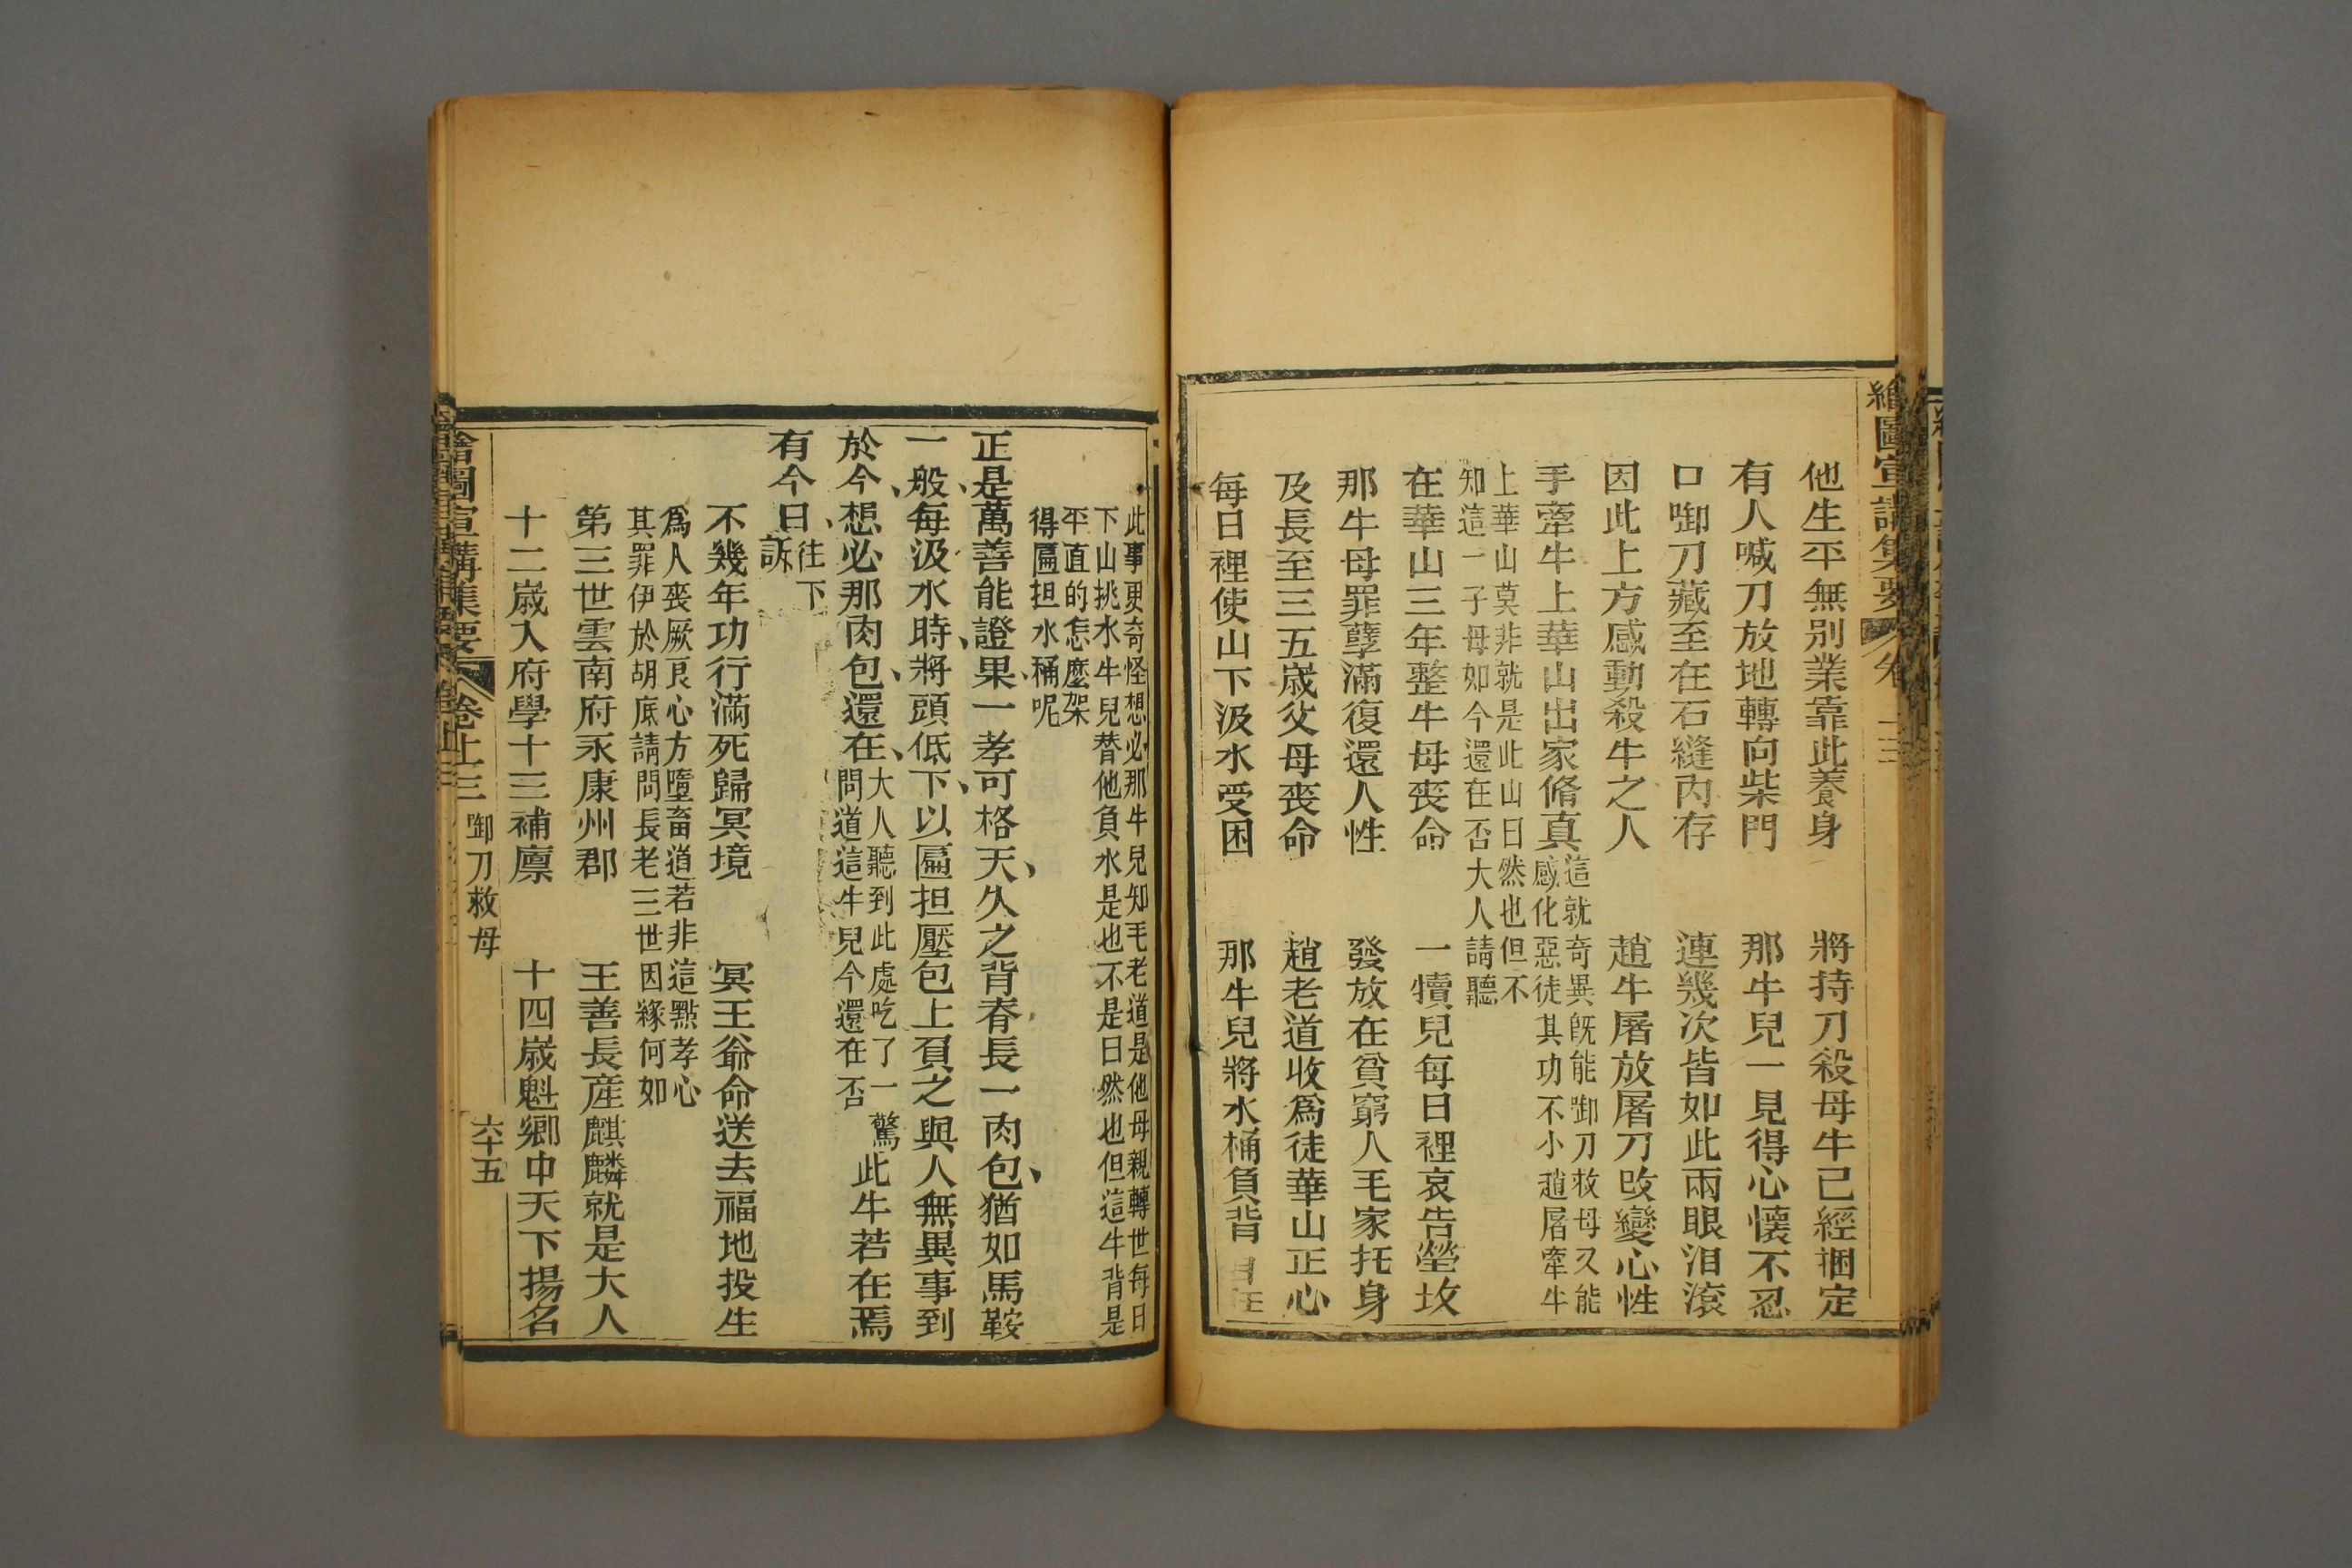 繪圖宣講集要 卷 三
他生平無別業靠此養身 將持刀殺母牛己經捆定
有人喊刀放地轉向柴門 那牛兒一見得心懷不忍
口啣刀藏至在石縫內存 連幾次皆如此兩眼泪滾
因此上方感動殺牛之人 趙牛屠放屠刀改變心性
手牽牛上華山出家脩真
這就奇異旣能啣刀救母又能
感化惡徒其功不小趙屠牽牛
上華山莫非就是此山曰然也但不
知這一子母如今還在否大人請聽
在華山三年整牛母喪命 一犢兒每日裡哀告塋坟
那牛母罪孽滿復還人性 發放在貧窮人毛家托身
及長至三五歲父母喪命 趙老道收爲徒華山正心
每日裡使山下汲水受困 那牛兒將水桶負背
此事更奇怪想必那牛兒知毛老道是他母親轉世每日
下山挑水牛兒替他負水是也不是曰然也但這牛背是
平直的怎麼架
得匾担水桶呢
正是萬善能證果一孝可格天久之背脊長一肉包猶如馬鞍
一般每汲水時將頭低下以匾担壓包上負之與人無異事到
於今想必那肉包還在
大人聽到此處吃了一驚
問道這牛兒今還在否
此牛若在焉
有今日
往下
訴
不幾年功行滿死歸冥境 冥王爺命送去福地投生
爲人喪厥良心方墮畜道若非這點孝心
其罪伊於胡底請問長老三世因緣何如
第三世雲南府永康州郡 王善長産麒麟就是大人
十二歲入府學十三補廪 十四歲魁鄉中天下揚名
繪圖宣講集要 卷上三 啣刀救母 六十五